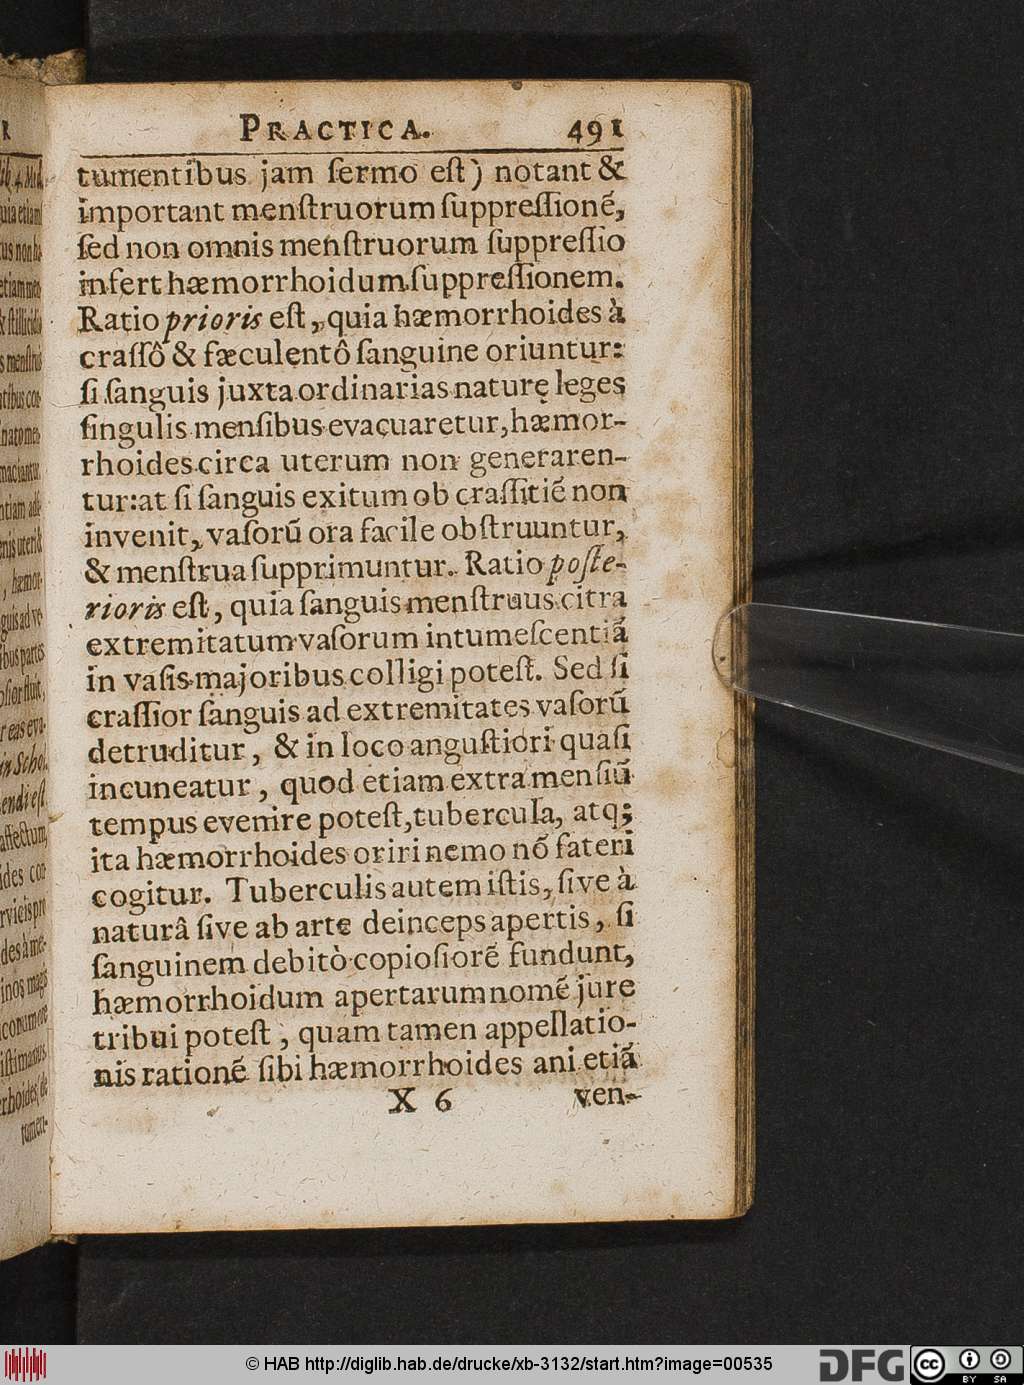 PRACTICA. 491
tumentibus jam ſermo eſt) notant &
important menſtruorum ſuppreſſionẽ,
ſed non omnis menſtruorum ſuppreſſio
infert hæmorrhoidum ſuppreſſionem.
Ratio prioris eſt, quia hæmorrhoides à
craſſô & fæculentô ſanguine oriuntur:
ſi ſanguis juxta ordinarias naturę leges
ſingulis menſibus evacuaretur, hæmor-
rhoides circa uterum non generaren-
tur: at ſi ſanguis exitum ob craſſitiẽ non
invenit, vaſorũ ora facile obſtruuntur,
& menſtrua ſupprimuntur. Ratio poſte-
rioris eſt, quia ſanguis menſtruus citra
extremitatum vaſorum intumeſcentiã
in vaſis majoribus colligi poteſt. Sed ſi
craſſior ſanguis ad extremitates vaſorũ
detruditur, & in loco anguſtiori quaſi
incuneatur, quod etiam extra menſiũ
tempus evenire poteſt, tubercula, atq;
ita hæmorrhoides oriri nemo nõ fateri
cogitur. Tuberculis autem iſtis, ſive à
naturâ ſive ab arte deinceps apertis, ſi
ſanguinem debitò copioſiorẽ fundunt,
hæmorrhoidum apertarum nomẽ jure
tribui poteſt, quam tamen appellatio-
nis rationẽ ſibi hæmorrhoides ani etiã
X 6 ven-
© HAB http://diglib.hab.de/drucke/xb-3132/start.htm?image=00535
DFG cc BY SA